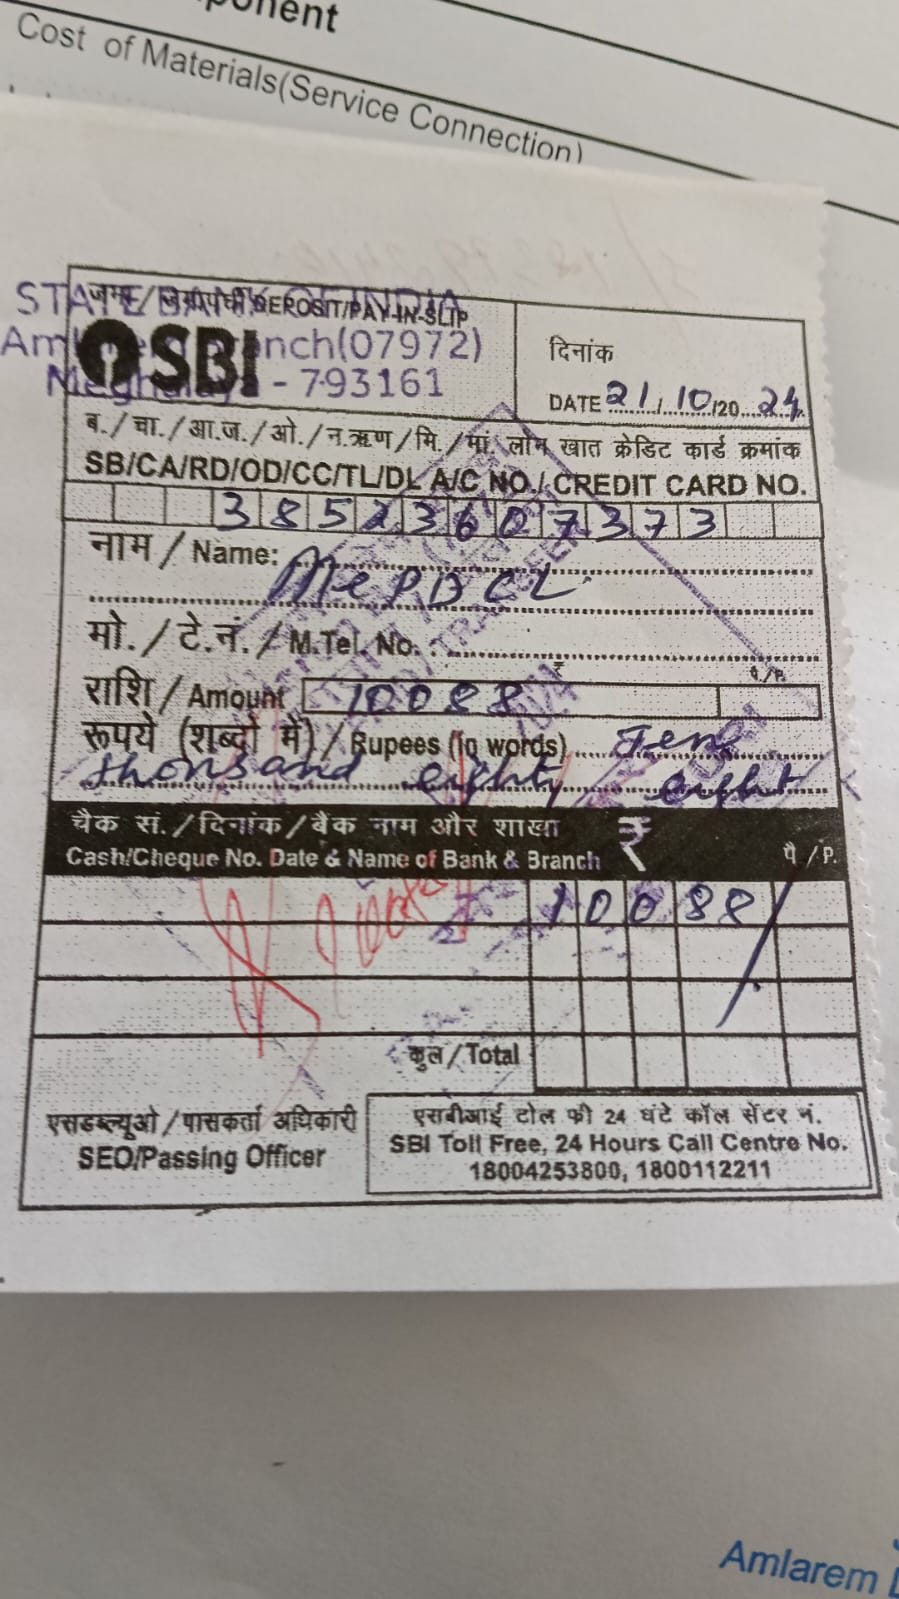 ponent
Cost of Materials(Service Connection)
STATE BANK OF INDIA
जमा / जमापर्ची DEPOSIT/PAY-IN-SLIP
SBI
Branch(07972)
Meghalaya - 793161
दिनांक
DATE 21/10/20 24
ब./चा./आ.ज./ओ./न.ऋण/मि./मां. लोन खात क्रेडिट कार्ड क्रमांक
SB/CA/RD/OD/CC/TL/DL A/C NO./ CREDIT CARD NO.
38523607373
नाम / Name: MePDCL
मो./टे.नं. / M.Tel. No.
₹ पै/P.
राशि / Amount 10088
रूपये (शब्दों में) / Rupees (in words) Ten
thousand eighty eight
चैक सं./दिनांक/बैंक नाम और शाखा ₹ पै/P.
Cash/Cheque No. Date & Name of Bank & Branch
10088/
कुल/Total
एसडब्ल्यूओ/पासकर्ता अधिकारी
SEO/Passing Officer
एसबीआई टोल फ्री 24 घंटे कॉल सेंटर नं.
SBI Toll Free, 24 Hours Call Centre No.
18004253800, 1800112211
Amlarem